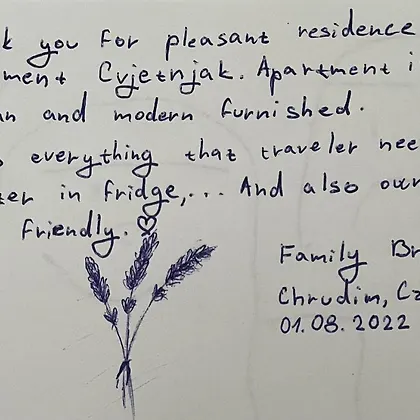 k you for pleasant residence
ment Cvjetnjak. Apartment i
n and modern furnished.
s everything that traveler nee
ter in fridge,... And also our
friendly.
Family Br
Chrudim, Cz
01.08.2022